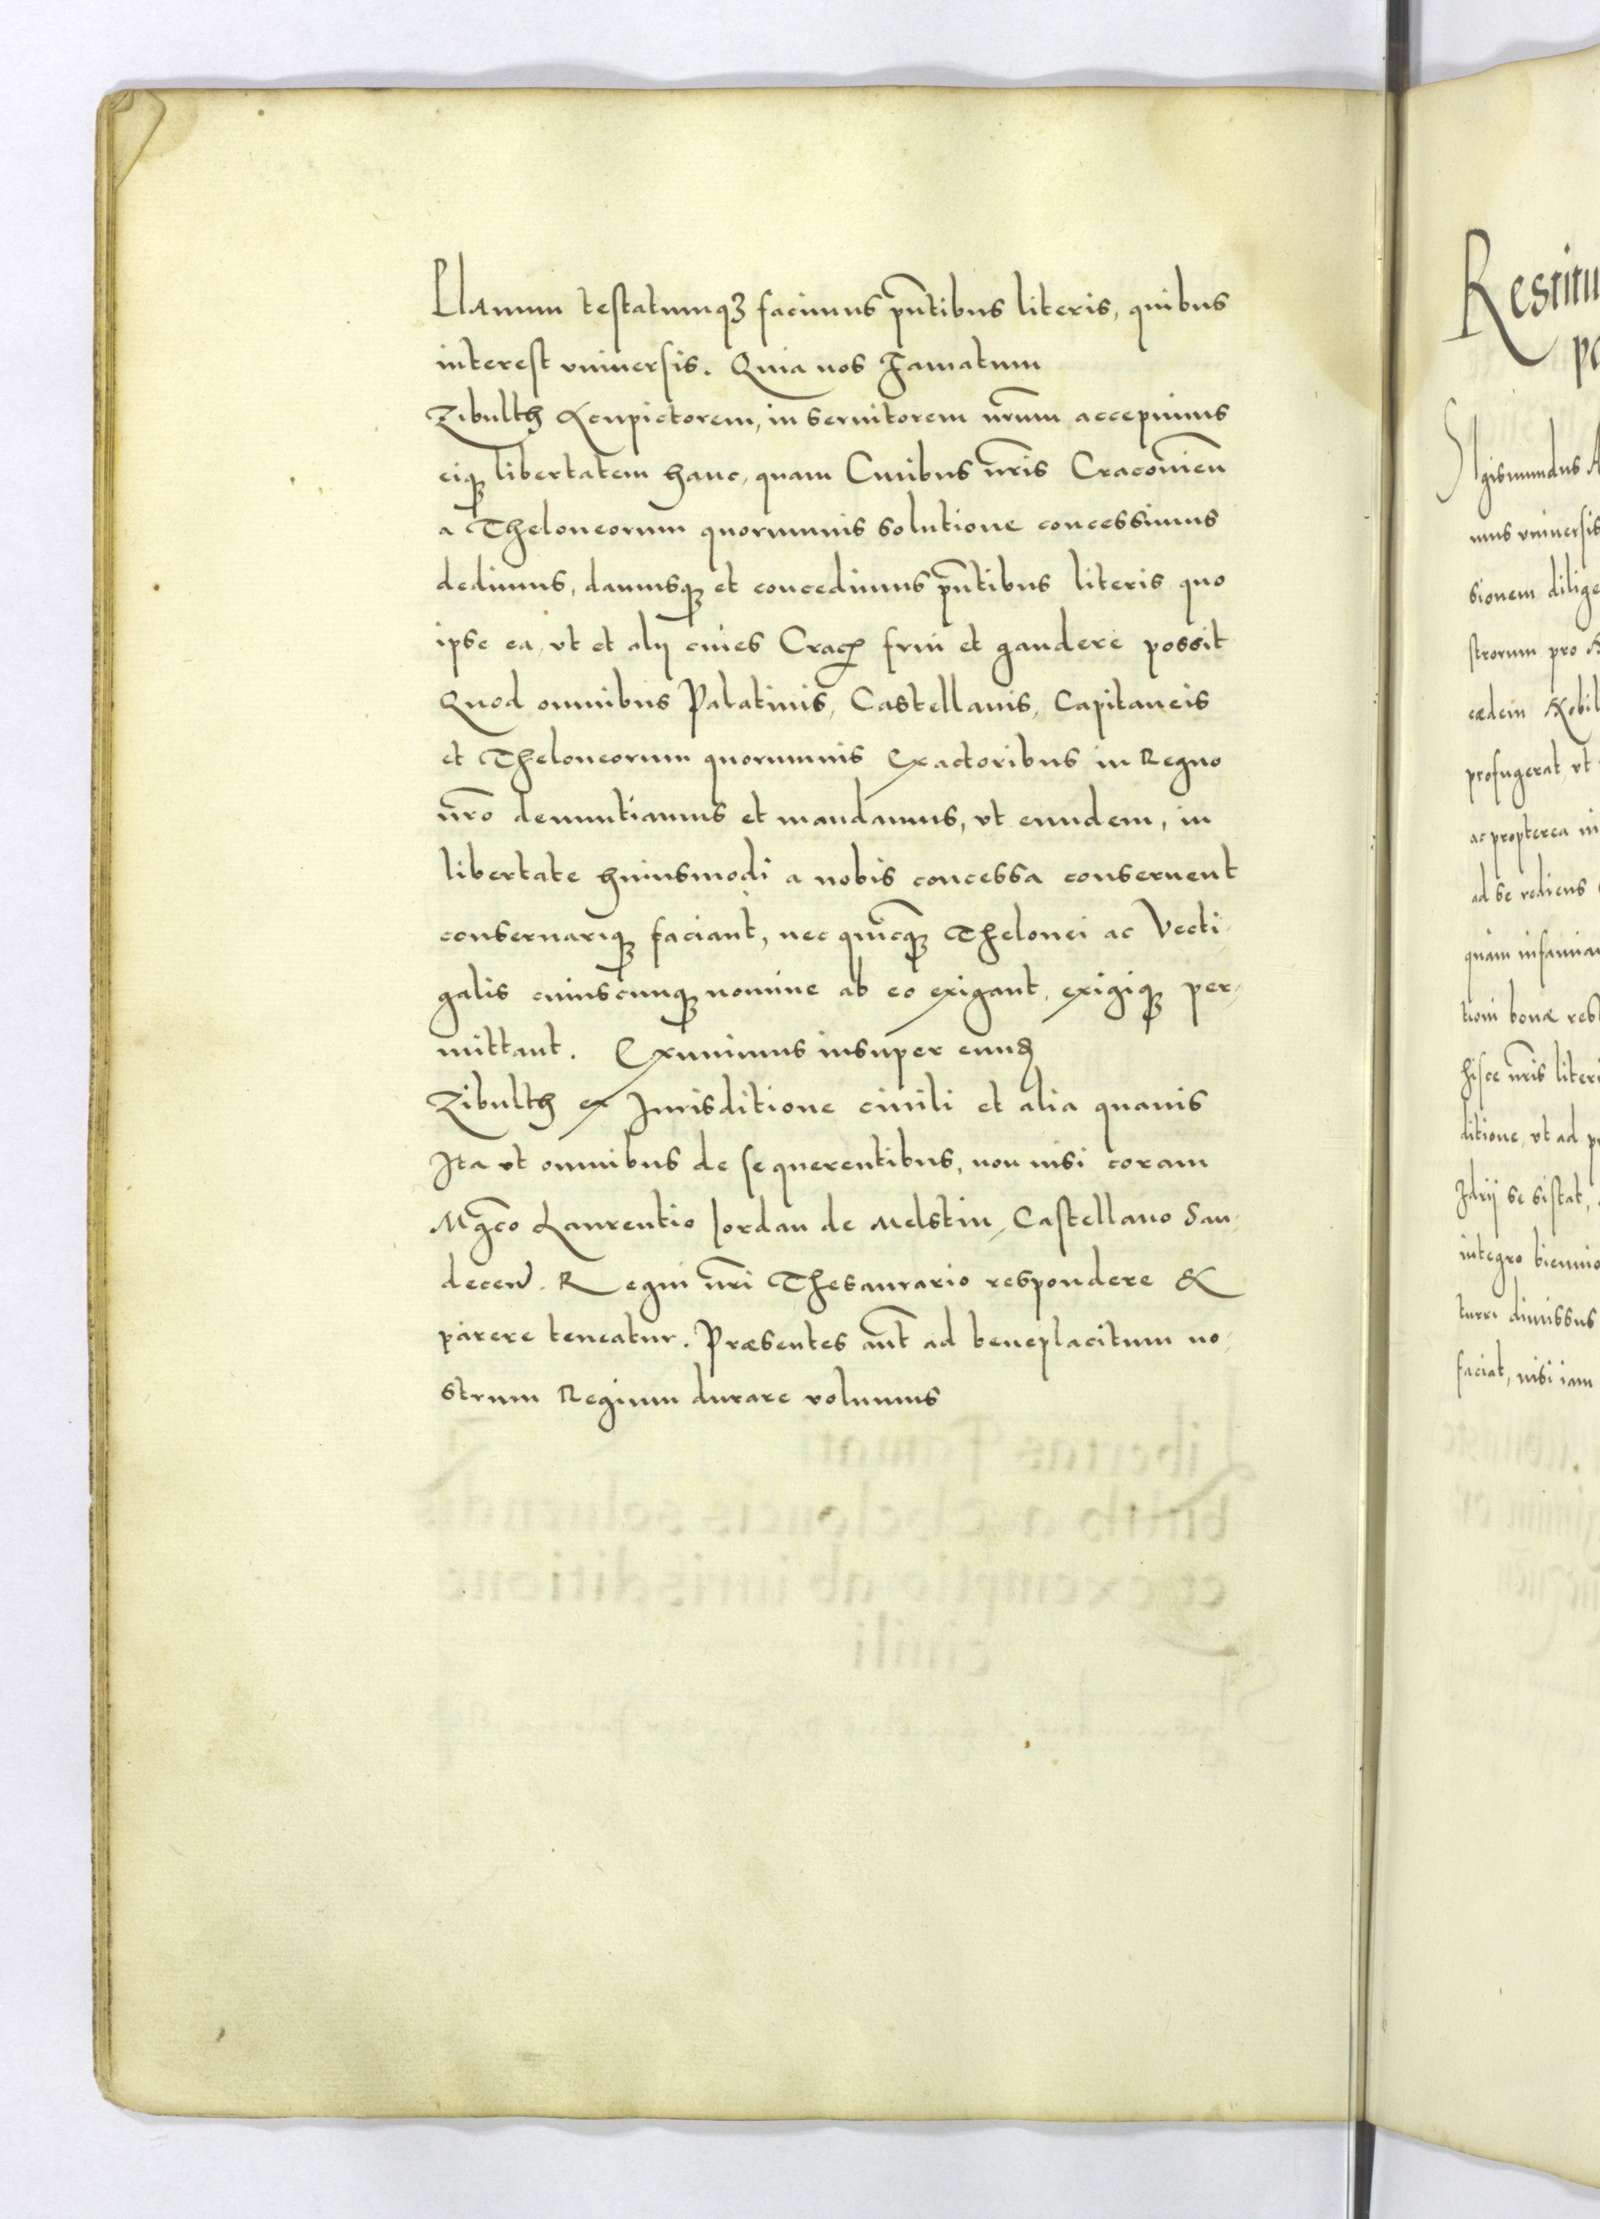 Planum testatumqꝫ facimus pn̄tibus literis, quibus
interest vniuersis. Quia nos Famatum
Zibulth Acupictorem, in seruitorem nr̄um accepimus
eiqꝫ libertatem hanc, quam Ciuibus nr̄is Cracouien̄
a Theloneorum quorumuis solutione concessimus
dedimus, damusqꝫ et concedimus pn̄tibus literis quo
ipse ea, vt et alij ciues Crac̄ frui et gaudere possit
Quod omnibus Palatinis, Castellanis, Capitaneis
et Theloneorum quorumuis Exactoribus in Regno
nr̄o denuntiamus et mandamus, vt eundem, in
libertate huiusmodi a nobis concessa conseruent
conseruariqꝫ faciant, nec quicqꝫ Thelonei ac Vecti-
galis cuiuscunqꝫ nomine ab eo exigant, exigiqꝫ per-
mittant. Eximimus insuper eund̄
Zibulth ex Jurisditione ciuili et alia quauis
Ita vt omnibus de se querentibus, non nisi coram
Mgc̄o Laurentio Jordan de Melstin, Castellano San-
decen̄. Regni nr̄i Thesaurario respondere &
parere teneatur. Præsentes aut̄ ad beneplacitum no-
strum Regium durare volumus
Restitu
Sigismundus A
mus vniuersis
sionem dilige
strorum pro
eædem Nobil
profugerat, vt
ac propterea in
ad se rediens
quam infamiam
tioni bonæ rest
hisce nr̄is literi
ditione, vt ad p
se sistat,
integro biennio
turri dimissus
faciat, nisi iam